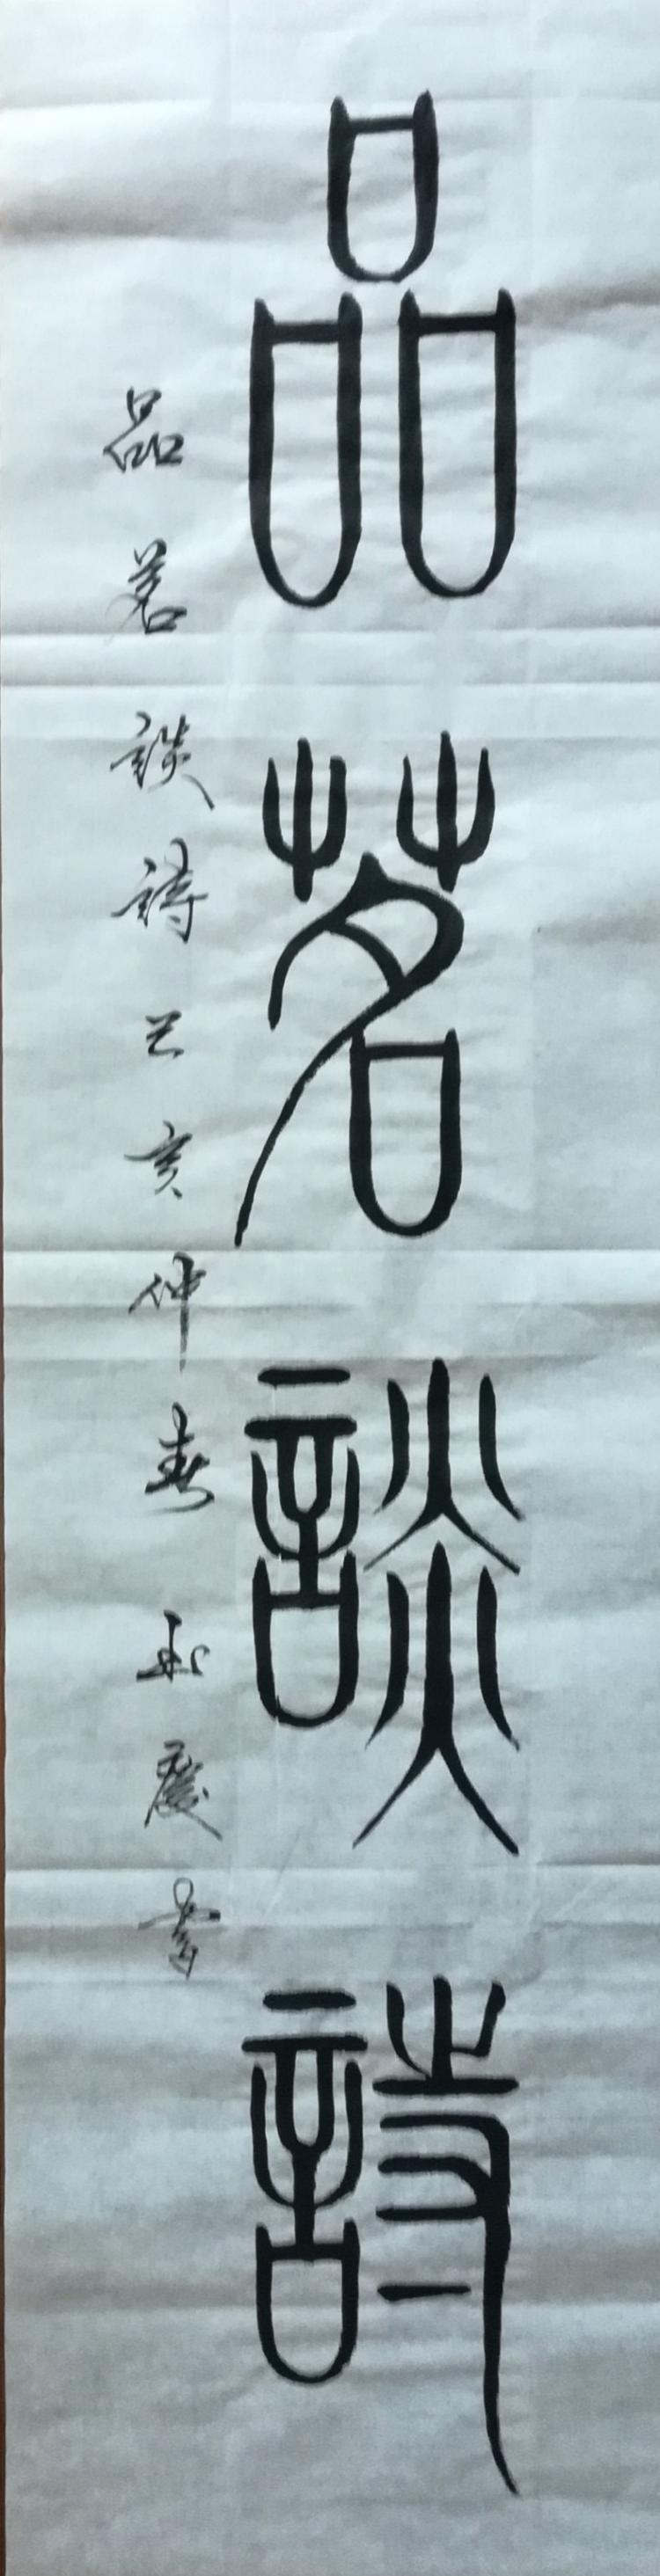 品茗談詩
品茗談詩己亥仲春
慶書